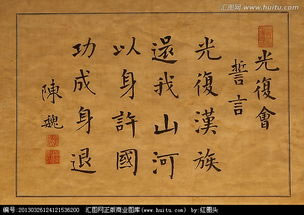 光復會
誓言
光復漢族
還我山河
以身許國
功成身退
陳魏
汇图网 www.huitu.com
编号:20130326124121536200 汇图网正版商业图库(www.huitu.com) by:红图头